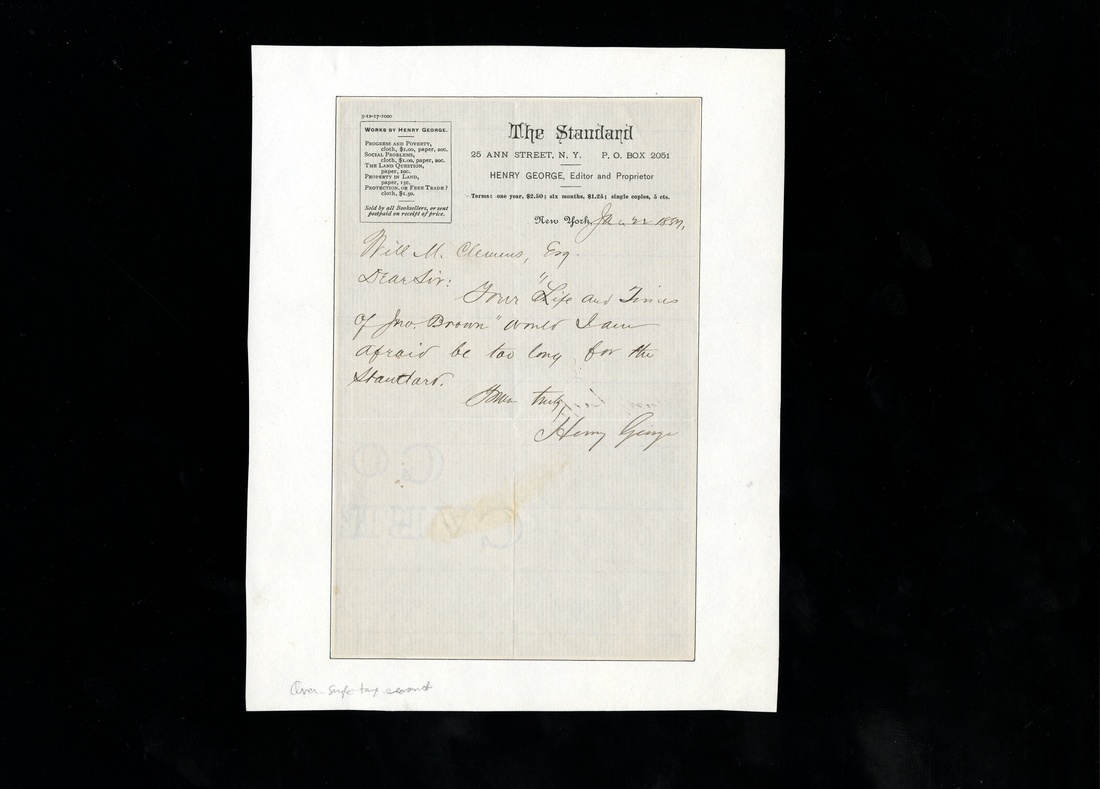 5-12-17-1000
WORKS BY HENRY GEORGE.
PROGRESS AND POVERTY,
cloth, $1.00, paper, 20c.
SOCIAL PROBLEMS,
cloth, $1.00, paper, 20c.
THE LAND QUESTION,
paper, 10c.
PROPERTY IN LAND,
paper, 15c.
PROTECTION, OR FREE TRADE?
cloth, $1.50.
Sold by all Booksellers, or sent
postpaid on receipt of price.
The Standard
25 ANN STREET, N. Y. P. O. BOX 2051
HENRY GEORGE, Editor and Proprietor
Terms: one year, $2.50; six months, $1.25; single copies, 5 cts.
New York, Jan 22
Will M. Clemens, Esq.
Dear Sir:
Your "Life and Times
of Jno. Brown" would I am
afraid be too long for the
Standard.
Yours truly,
Henry George
Over